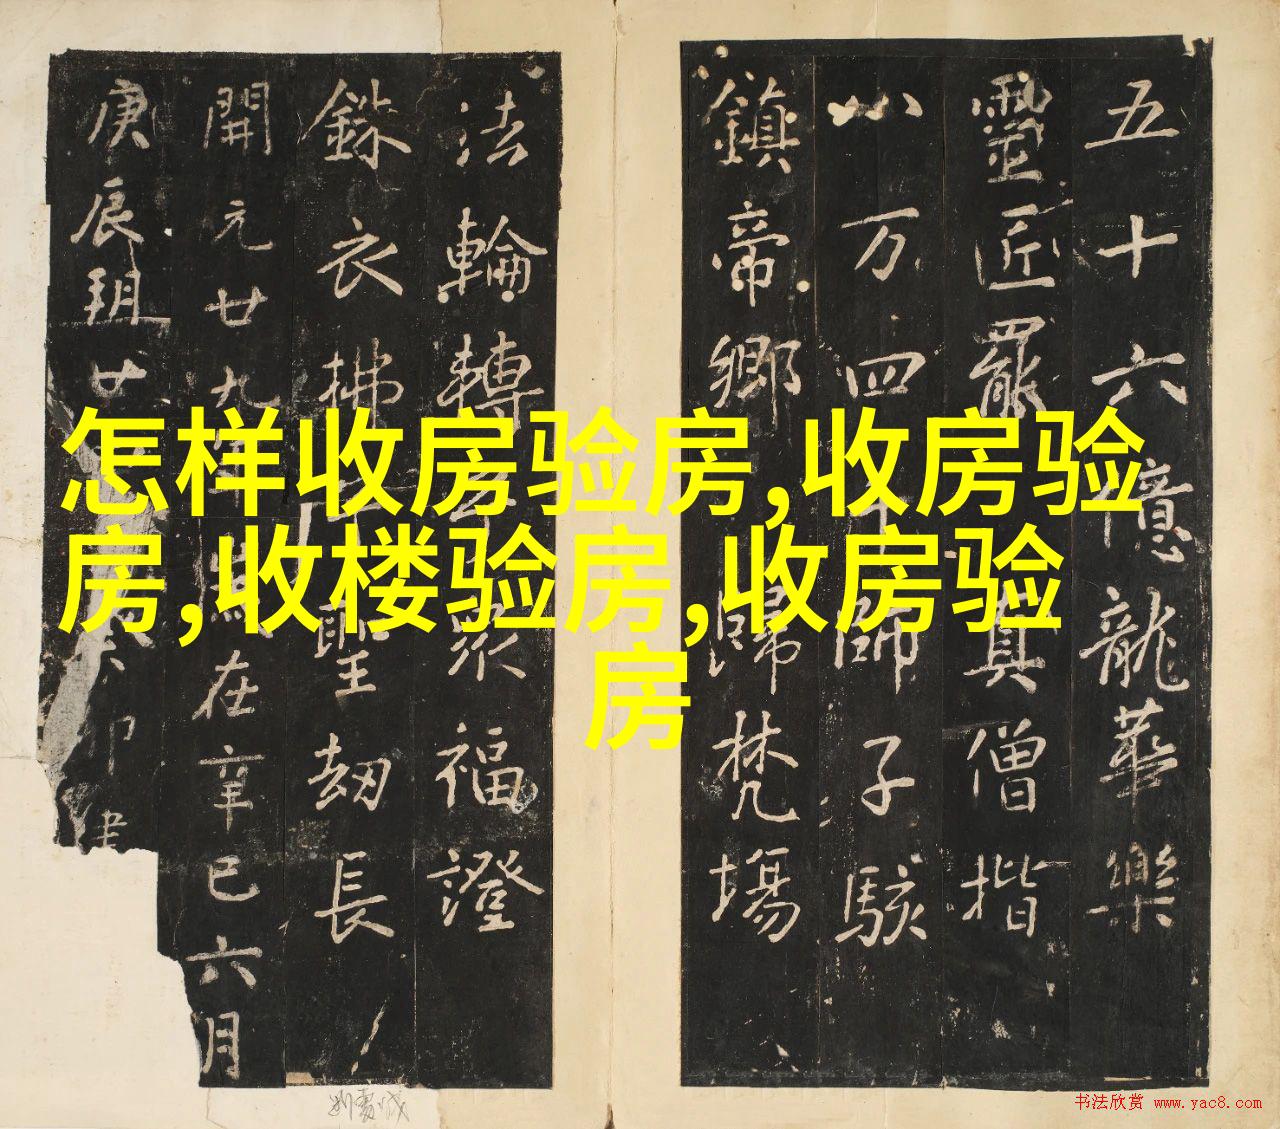 怎样收房验房,收房验
房,收楼验房,收房验
房
五十六億龍華樂
靈匠罷真僧揩
八万四師子駭
鎮帝鄉歸梵場
法輪轉眾福證
銖衣拂聖劫長
開元廿九年在辛巳六月
庚辰朔廿卯建
书法欣赏 www.yac8.com